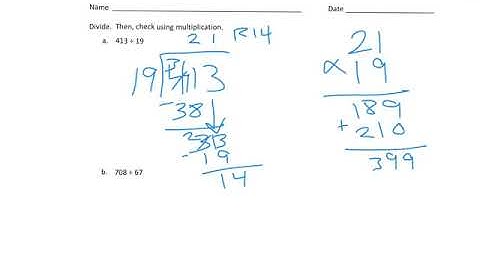 Name Date
Divide. Then, check using multiplication.
a. 413 ÷ 19
21 R14
19 413
-38
33
-19
14
21
×19
189
+210
399
b. 708 ÷ 67